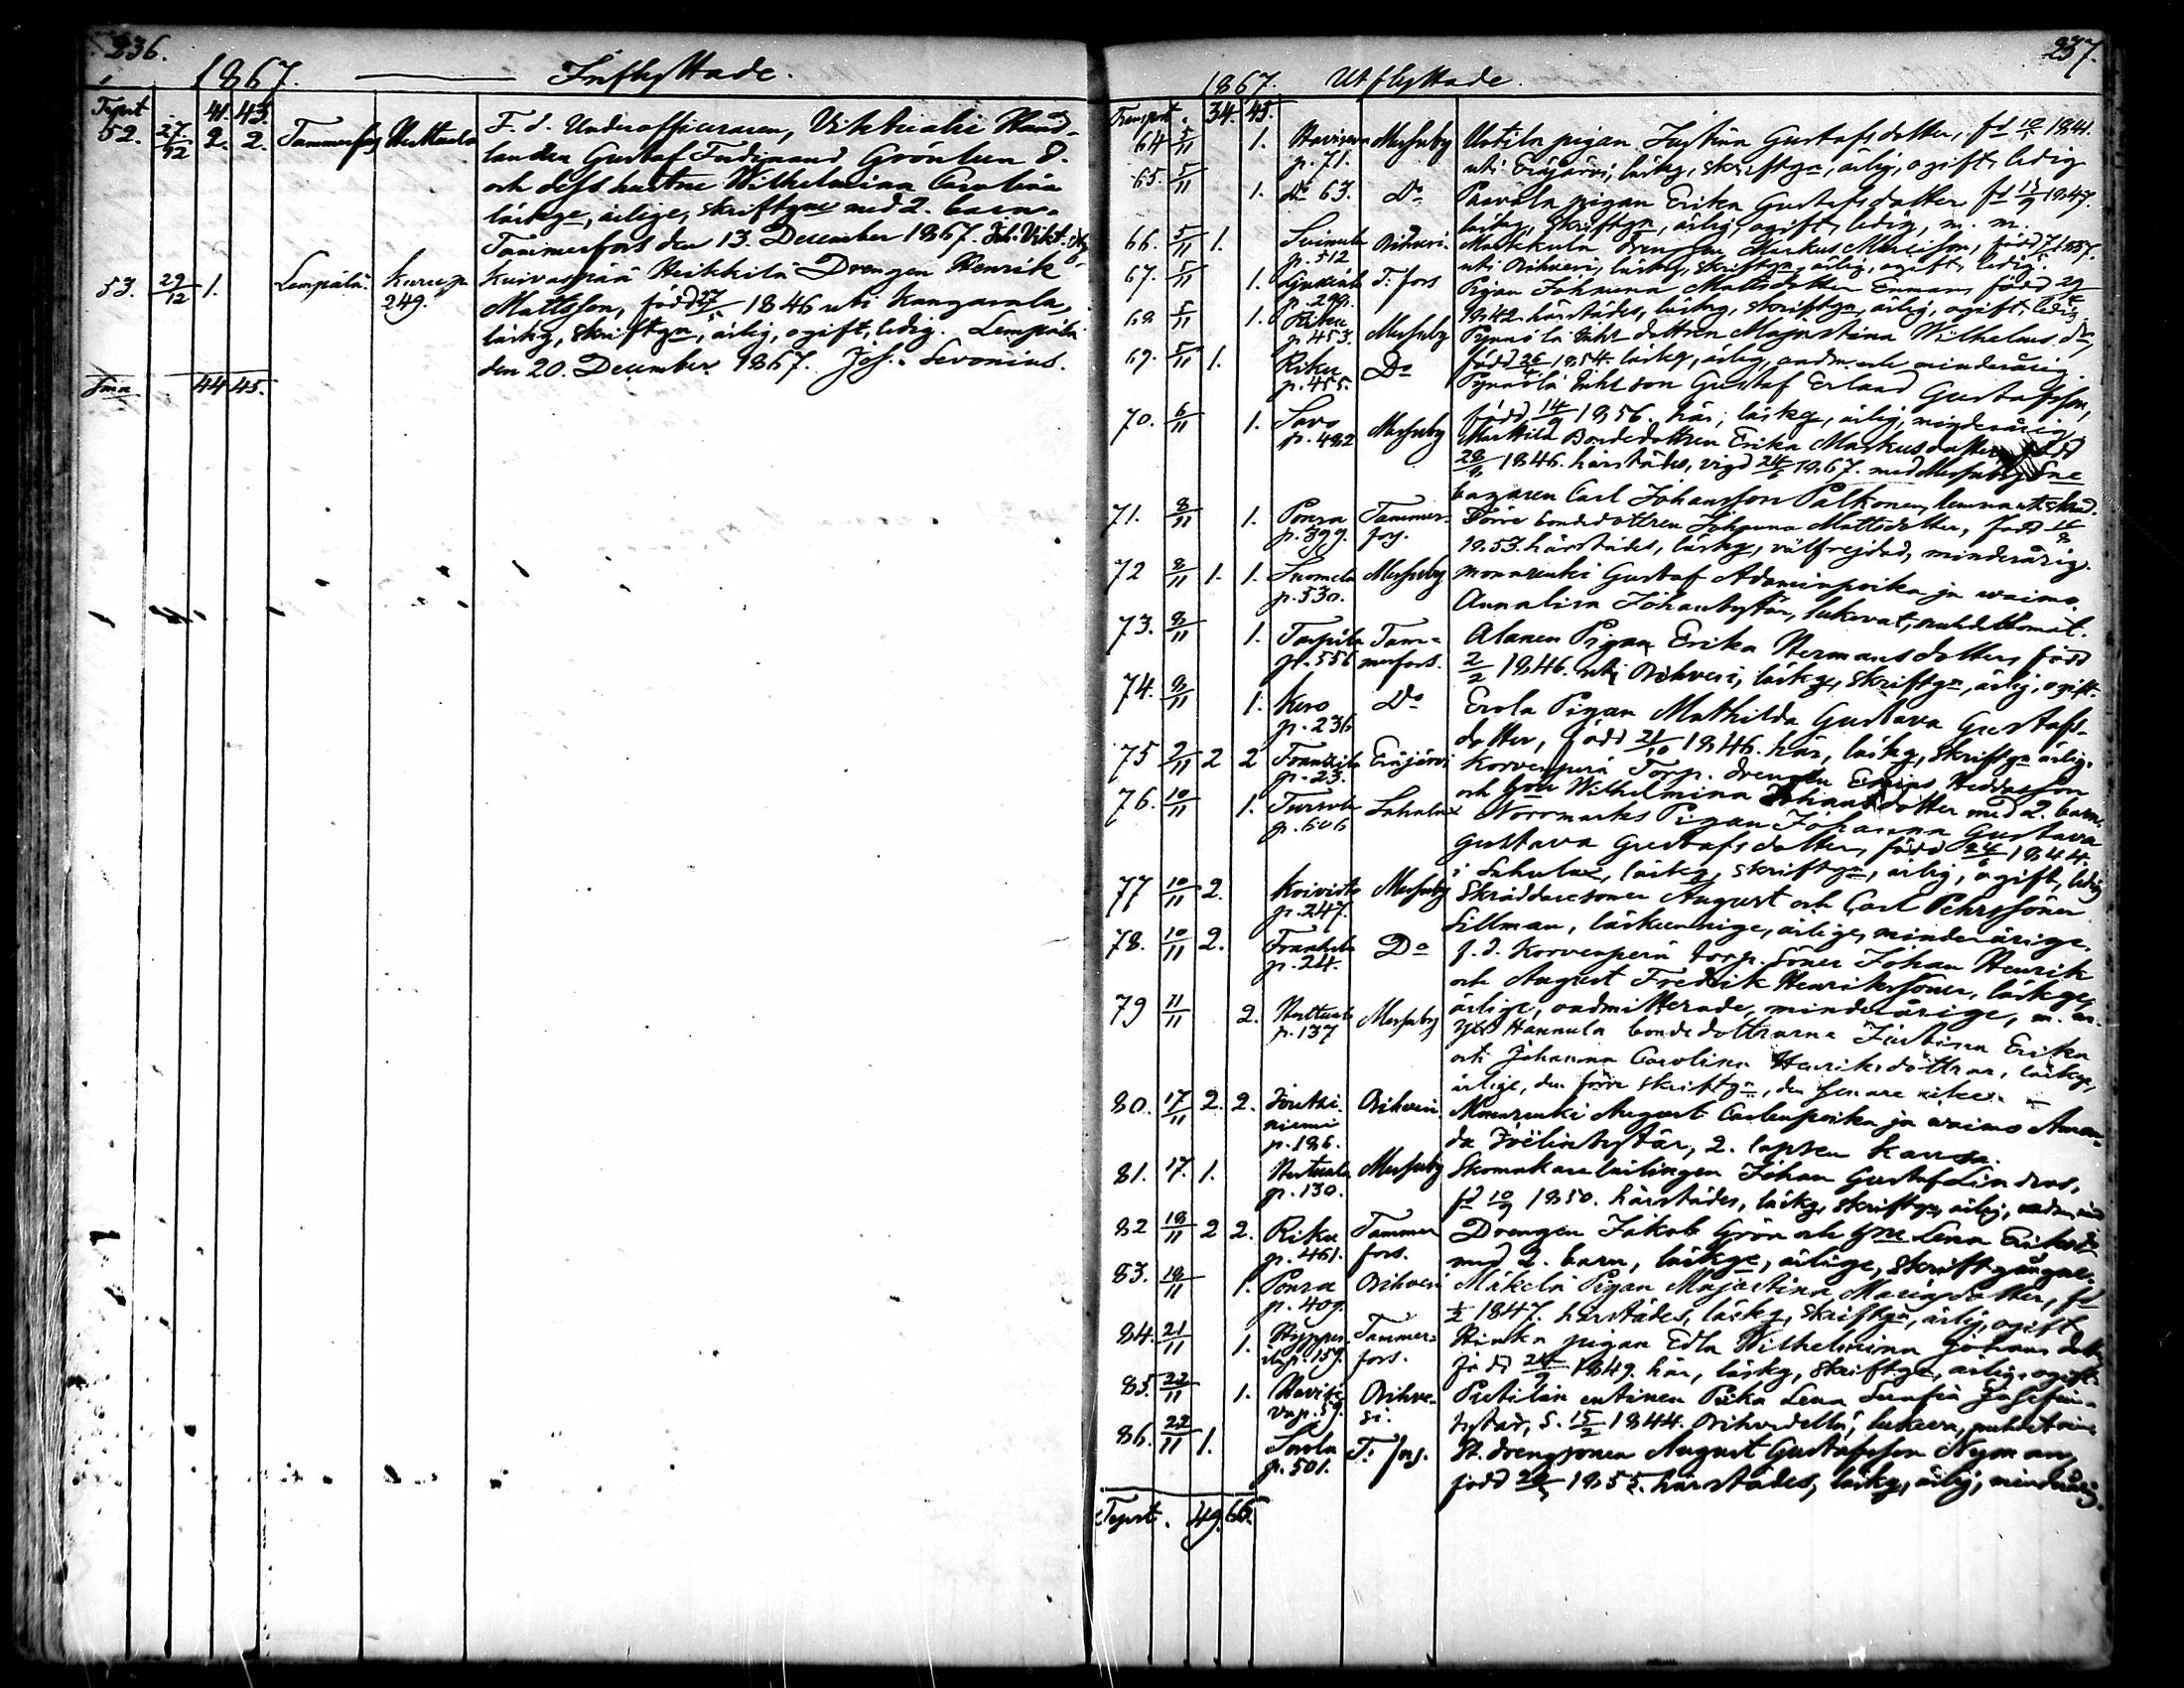 236.
1867. Inflyttade.
Tsprt 41. 43.
52. 27/12 2. 2. Tammerfors Herttuala F. d. Underofficeraren, Viktualie Hand-
landen Gustaf Ferdinand Grönlun d.
och dess hustru Wilhelmina Carolina
läskge, ärlige, skriftgne med 2. barn.
Tammerfors den 13. December 1867. Joh. Vikt.
53. 29/12 1. Lempälä. Kuru p. 249. Kuivaspää Heikkilä Drengen Henrik
Mattsson, född 27/5 1846 uti Kangasala,
läskg, skriftgn, ärlig, ogift, ledig. Lempälä
den 20. December 1867. Joh. Sevonius.
Sma 44 45.
237.
1867. Utflyttade.
Transport. 34. 45.
64 5/11 1. p. 71. Messuby Uotila pigan Justina Gustafsdotter, fd 10/ 1841.
uti Eräjärvi, läskg, skriftgn, ärlig, ogift, ledig
65. 5/11 1. Do 63. Do Paavola pigan Erika Gustafsdotter fd 13/9 1847.
läskg, skriftgn, ärlig, ogift, ledig, m. m.
66. 5/11 1. p. 512 Orihvesi. Markkula drengen Markus född 1837.
uti Orihvesi, läskg, skriftgn, ärlig, ogift, ledig.
67. 5/11 1. T. fors Pigan Johanna Mattsdotter Enman, född 29/
1842 härstädes, läskg, skriftgn, ärlig, ogift, ledig.
68 5/11 1. Riku p. 453. Messuby Pynnölä Inhs dottren Majastina Wilhelms dr,
född 26/4 1854. läskg, ärlig, oadm. och minderårig.
69. 5/11 1. Riku p. 455. Do Pynnölä Inhs son Gustaf Erland Gustafsson,
född 14/9 1856. här, läskg, ärlig, minderårig,
70. 6/11 1. Savo p. 482 Messuby Marttila Bondedottren Erika Markusdotter född
28/ 1846. härstädes, vigd 24/ 1867. med Messuby Sne
bagaren Carl Johansson Palkonen,
71. 8/11 1. Ponsa p. 399. Tammer-
fors. bondedottren Johanna Mattsdotter, född
1853. härstädes, läskg, välfrejdad, minderårig.
72 8/11 1. 1. Suomela p. 530. Messuby Monnrenki Gustaf Adaminpoika ja waimo
Annaliisa Johantytär, lukevat,
73. 8/11 1. Tarpila p. 556 Tam-
merfors. Alanen Pigan Erika Hermansdotter, född
2/2 1846. uti Orihvesi, läskg, skriftgn, ärlig, ogift.
74. 8/11 1. Kuro p. 236 Do Erola Pigan Mathilda Gustava Gustafs-
dotter, född 21/10 1846. här, läskg, skriftgn ärlig.
75 9/11 2 2 Frantsila p. 23. Eräjärvi Korvenperä Torp. drengen
och hu Wilhelmina Johansdotter med 2. barn.
76. 10/11 1. Tursola p. 606 Sahalax Norrmarks Pigan Johanna Gustava
Gustava Gustafsdotter, född 24/6 1844.
i Sahalax, läskg, skriftgn, ärlig, ogift, ledig
77 10/11 2. Koivisto p. 247. Messuby Skräddaresöner August och Carl Pehrssöner
Sillman, läskunnige, ärlige, minderårige.
78. 10/11 2. Frantsila p. 24. Do f. d. Korvenperä torp. Söner Johan Henrik
och August Fredrik Henrikssöner, läskge,
ärlige, oadmitterade, minderårige, m. m.
79 11/11 2. Herttuala p. 137 Messuby Hannula bondedottrarne Justina Erika
och Johanna Carolina Henriksdöttrar, läskge,
ärlige, den förre skriftgn, den senare icke.
80. 17/11 2. 2. niemi p. 186. Orihvesi Monnrenki August Carlenpoika ja waimo Aman-
da Joëlintytär, 2. lapsen kanssa.
81. 17. 1. Herttuala p. 130. Messuby Skomakare lärlingen Johan Gustaf Lindros,
fd 10/9 1850. härstädes, läskg, skriftgn, ärlig,
82 18/11 2 2. Riku p. 461. Tammer
fors. Drengen Jakob Grön och hu Lena Eriksdr
med 2. barn, läskge, ärlige, skriftgångne.
83. 18/11 1. Ponsa p. 409. Orihvesi Mäkelä Pigan Majastina Mariasdotter, fd
1/2 1847. härstädes, läskg, skriftgn, ärlig, ogift
84. 21/11 1. p. 159. Tammer-
fors. pigan Edla Wilhelmina Johans dotter
född 24/9 1849. här, läskg, skriftgn, ärlig, ogift.
85. 22/11 1. p. 59. Orihve-
si. entinen Piika Lena Serafia Josefin-
tytär, s. 15/2 1844. Orihvedellä, lukeva,
86. 22/11 1. Savola p. 501. T. fors. St. drengsonen August Gustafsson Nyman,
född 1855. härstädes, läskg, ärlig, minderårig.
Tsprt. 49. 66.